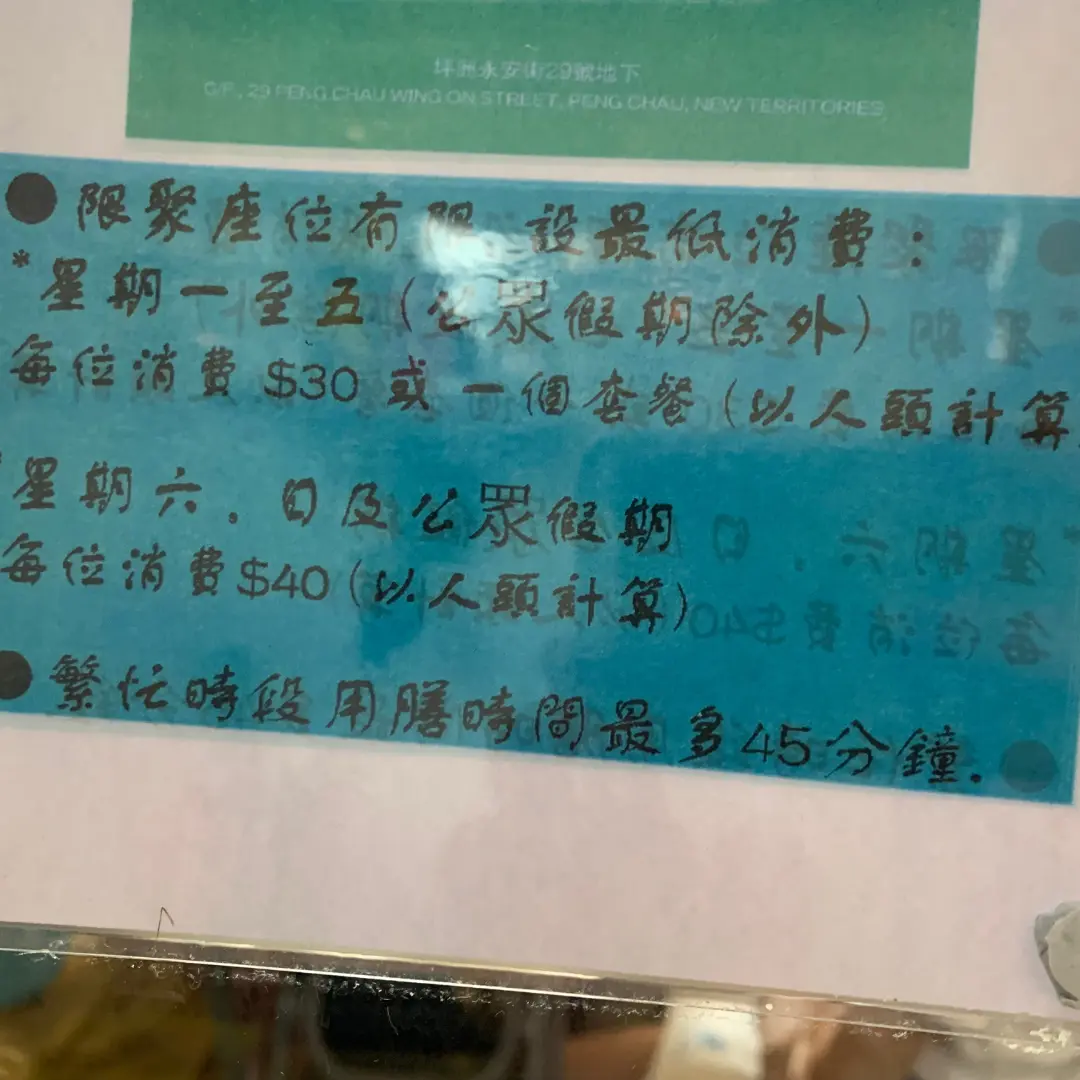 坪洲永安街29號地下
G/F., 29 PENG CHAU WING ON STREET, PENG CHAU, NEW TERRITORIES
● 限聚座位有限 設最低消費：
*星期一至五(公眾假期除外)
每位消費 $30 或 一個套餐 (以人頭計算
*星期六。日及公眾假期
每位消費$40 (以人頭計算)
● 繁忙時段用膳時間最多45分鐘.